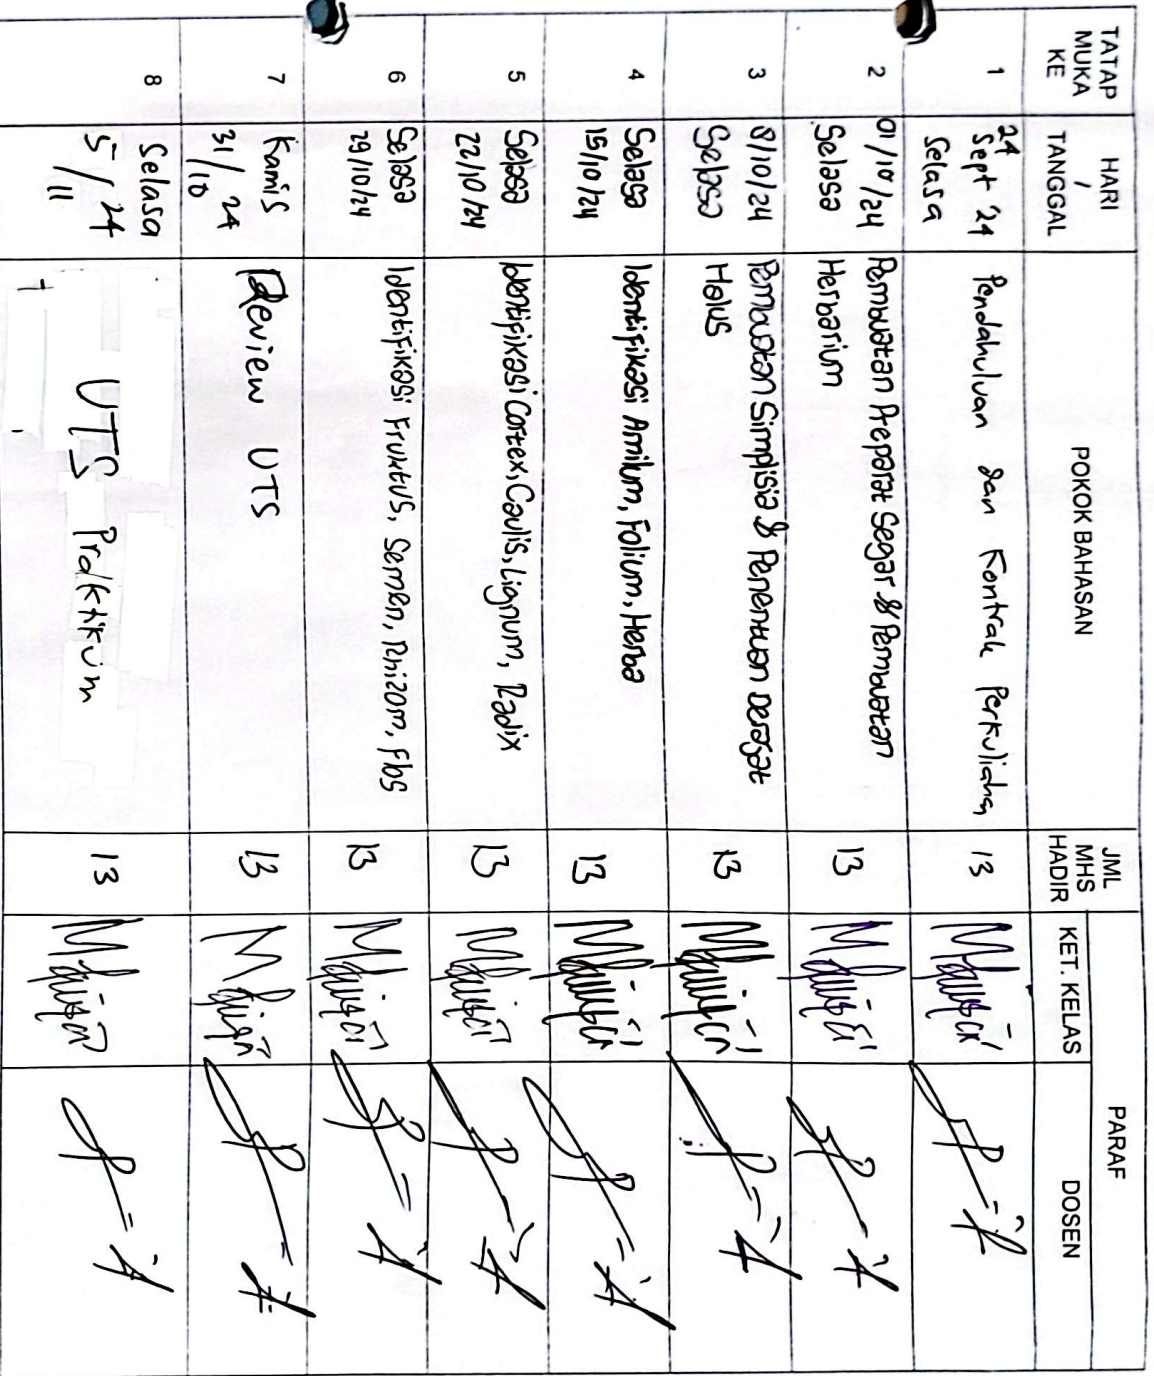 TATAP MUKA KE
HARI / TANGGAL
POKOK BAHASAN
JML MHS HADIR
PARAF
KET. KELAS
DOSEN
1
24 Sept '24
Selasa
Pendahuluan dan Kontrak Perkuliahan
13
2
01/10/24
Selasa
Pembuatan Preparat Segar & Pembuatan
Herbarium
13
3
8/10/24
Selasa
Pembuatan Simplisia & Penentuan Derajat
Halus
13
4
Selasa
15/10/24
Identifikasi Amilum, Folium, Herba
13
5
Selasa
22/10/24
Identifikasi Cortex, Caulis, Lignum, Radix
13
6
Selasa
29/10/24
Identifikasi Fruktus, Semen, Rhizom, Flos
13
7
Kamis
31/10 24
Review UTS
13
8
Selasa
5/11 24
UTS Praktikum
13